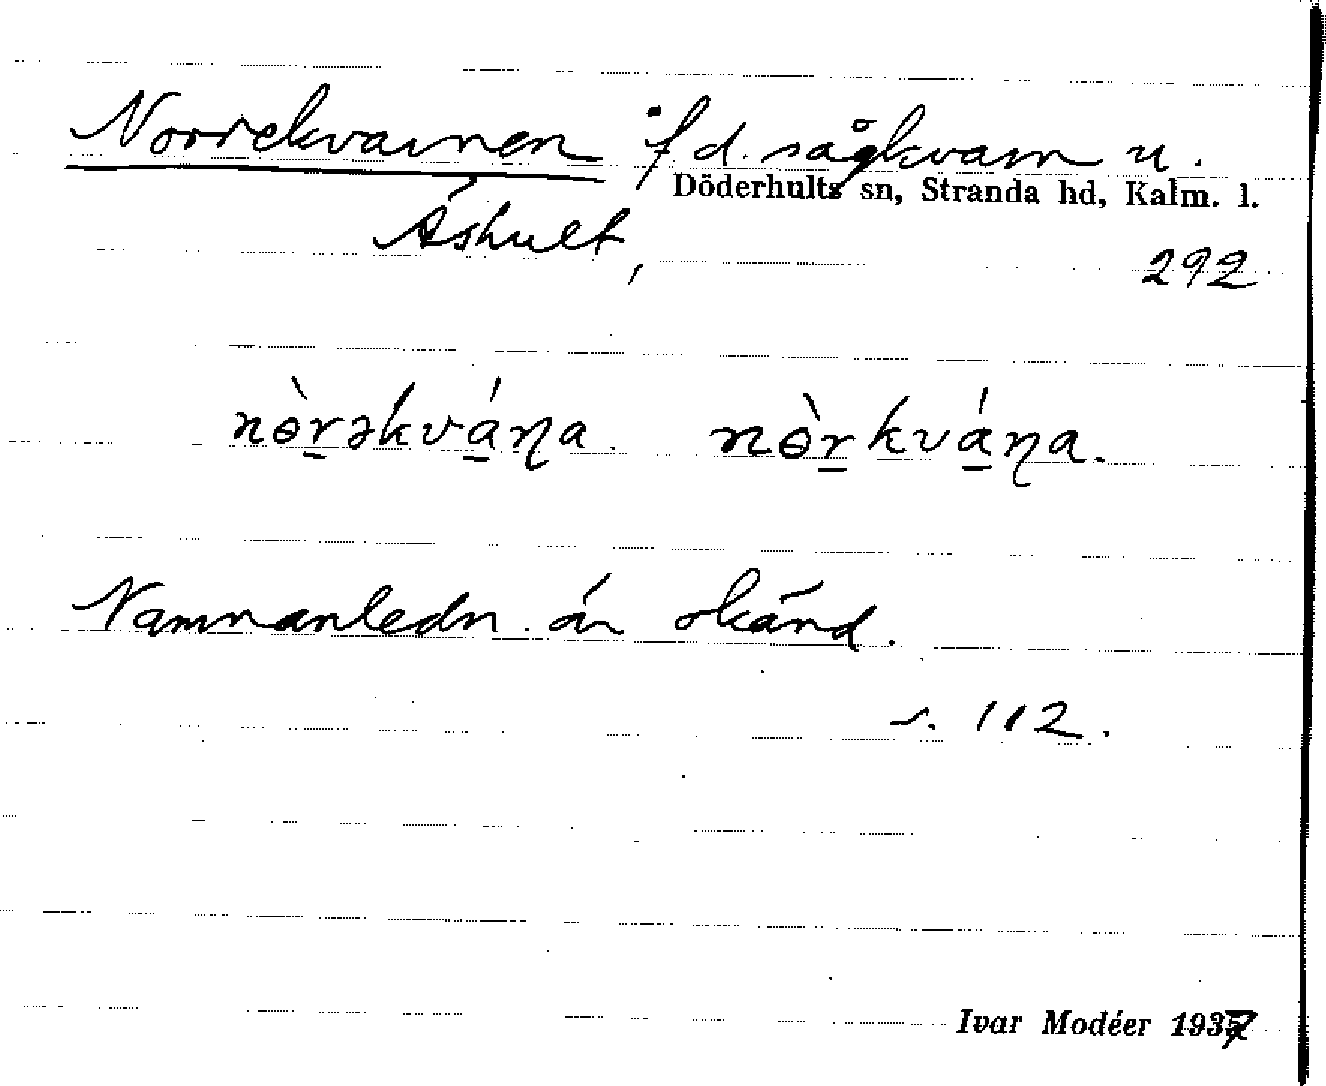 Norrekvarnen f d. sågkvarn u.
Döderhults sn, Stranda hd, Kalm. l.
Åshult,
292
nɵ̀r̲əkvá̲ɳa. nɵ̀r̲kvá̲ɳa.
Namnanledn. är okänd.
s. 112.
Ivar Modéer 1937